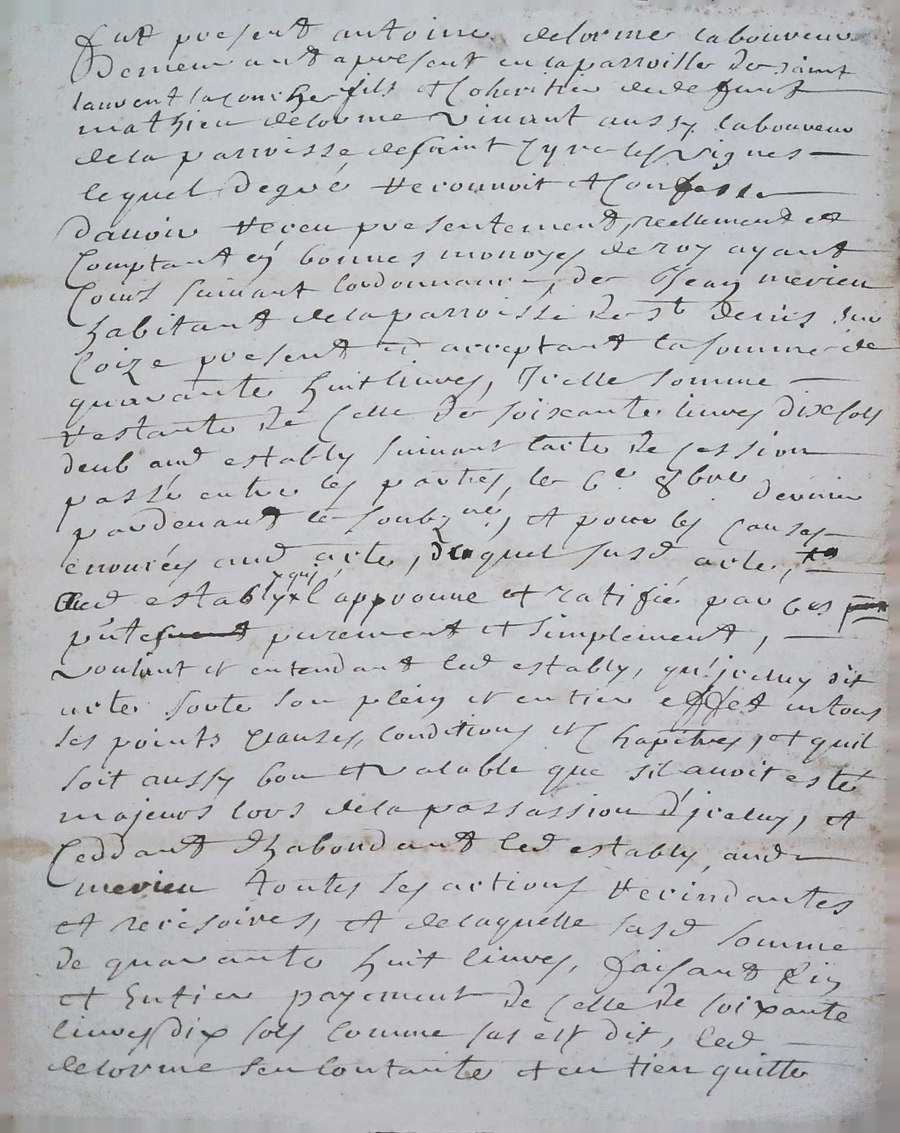 fut present antoine delorme laboureur
Demeurant apresent en la parroisse de saint
laurent la conche fils et Coheritier de defunt
mathieu delorme vivant aussy laboureur
de la parroisse de saint Cyre les vignes
lequel De gré reconnoit et Confesse
Davoir receu presentement, reellement et
Comptant en bonnes monoyes de roy ayant
Cours suivant lordonnance, de Jean merieu
habitant de la parroisse de St denis sur
Coize present et acceptant la somme de
quarante huit livres, Jcelle somme
restante de celle de soixante livres dix sols
deub aud estably suivant lacte de cession
passé entre les parties, le 6e 8bre dernier
pardevant le soubzné, et pour les causes
enoncées aud acte, duquel susd acte,
led estably qui l'approuve et ratiffie par ces
pntes purement et simplement,
voulant et entendant led estably, qu'jceluy dit
acte sorte son plein et entier effet en tous
ses points clauses, conditions et Chapitres, et quil
soit aussy bon et valable que sil avoit esté
majeurs lors de la passassion d'jceluy, et
Ceddant d'habondant led estably, aud
merieu toutes ses actions recindantes
et recisoires, et de laquelle susd somme
de quarante huit livres, faisant fin
et Entier payement de celle de soixante
livres dix sols comme sus est dit, led
delorme sen contante et en tien quitte